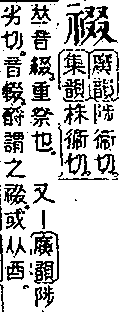 䄌
廣韻陟衞切
集韻株衞切
𠀤音綴。重祭也。又—廣韻陟
劣切。音輟。酹謂之䄌。或从酉。